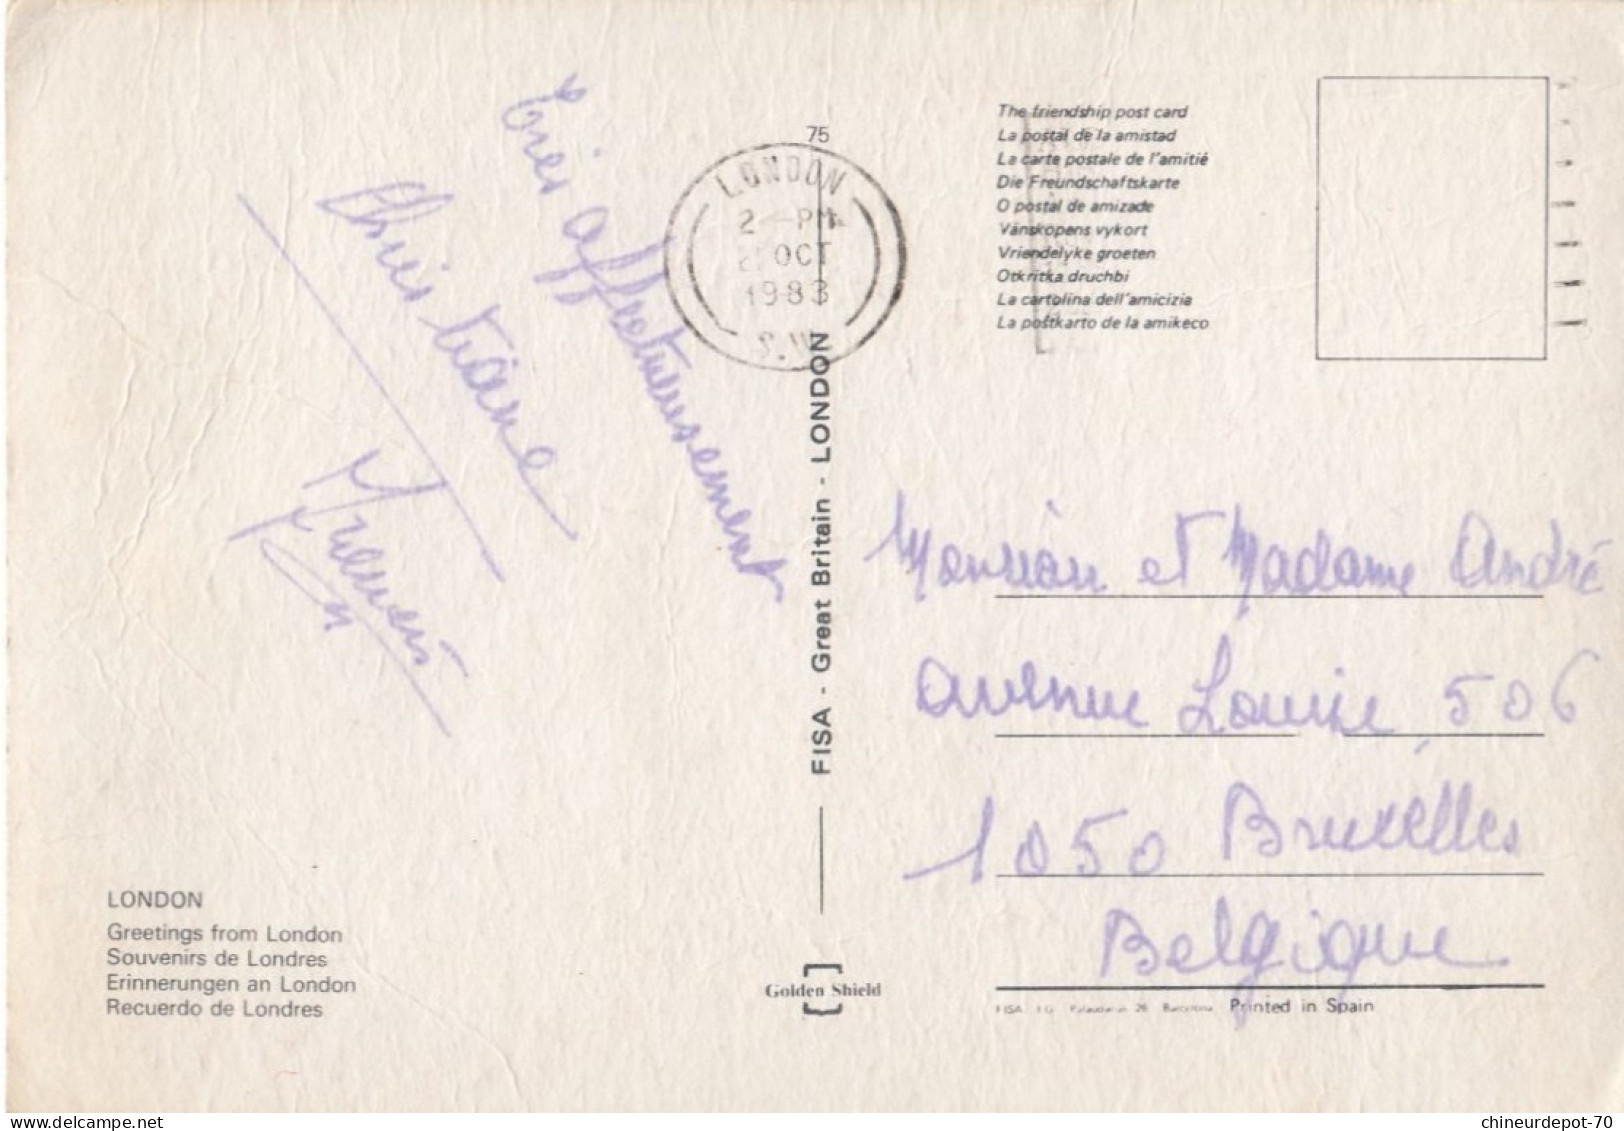 Très affectueusement
Christiane
75
LONDON
2 - PM
OCT
1983
S.W.
FISA - Great Britain - LONDON
Golden Shield
The friendship post card
La postal de la amistad
La carte postale de l'amitié
Die Freundschaftskarte
O postal de amizade
Vänskopens vykort
Vriendelyke groeten
Otkritka druchbi
La cartolina dell'amicizia
La poŝtkarto de la amikeco
Monsieur et Madame André
avenue Louise, 506
1050 Bruxelles
Belgique
FISA I.G. Palaudarias 26 Barcelona Printed in Spain
LONDON
Greetings from London
Souvenirs de Londres
Erinnerungen an London
Recuerdo de Londres
www.delcampe.net
chineurdepot-70